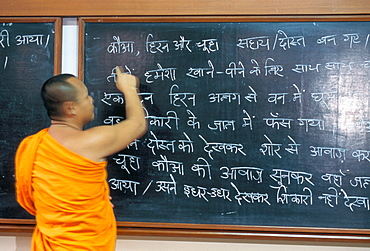 री आया।
कौआ, हिरन और चूहा सहाय/दोस्त बन गए।
हमेशा खाने-पीने के लिए साथ साथ
एक दिन हिरन अलग से वन में घूम
कारी के जाल में फँस गया
दोस्त को देखकर शोर से आवाज़ कर
चूहा कौआ की आवाज़ सुनकर वहाँ जा
आया / उसने इधर-उधर देखकर शिकारी नहीं देखा